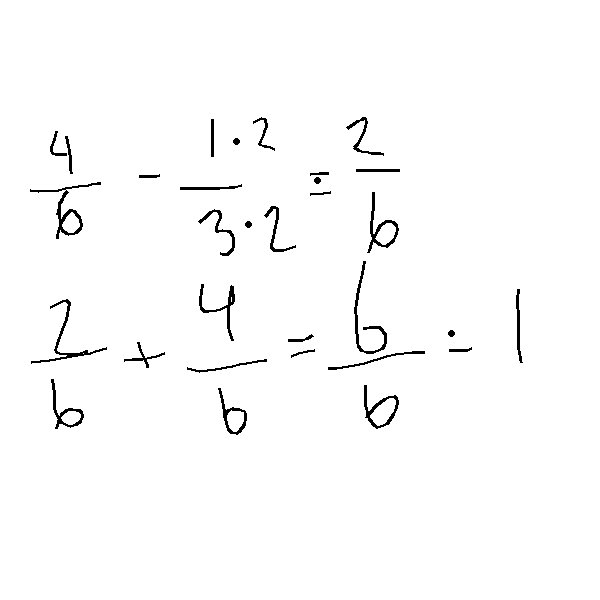 4/6 - 1·2/3·2 = 2/6
2/6 + 4/6 = 6/6 = 1